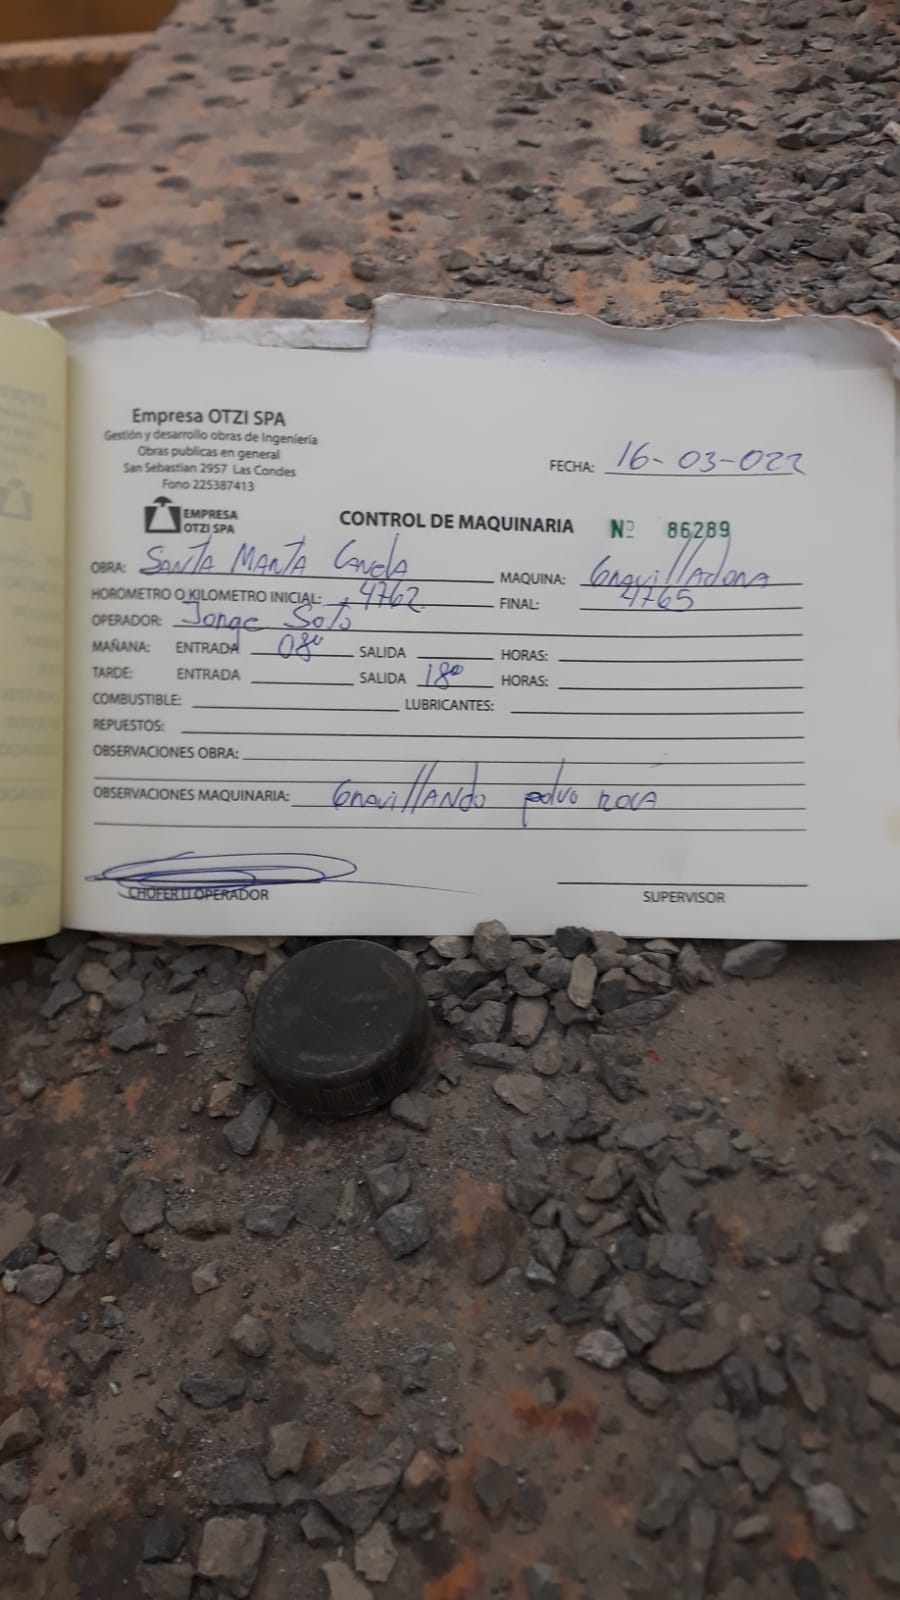 Empresa OTZI SPA
Gestión y desarrollo obras de Ingeniería
Obras publicas en general
San Sebastian 2957 Las Condes
Fono 225387413
FECHA: 16-03-022
EMPRESA
OTZI SPA
CONTROL DE MAQUINARIA Nº 86289
OBRA: Santa Marta Canela MAQUINA: Gravilladora
HOROMETRO O KILOMETRO INICIAL: 4762 FINAL: 4765
OPERADOR: Jorge Soto
MAÑANA: ENTRADA 08⁰⁰ SALIDA HORAS:
TARDE: ENTRADA SALIDA 18⁰⁰ HORAS:
COMBUSTIBLE: LUBRICANTES:
REPUESTOS:
OBSERVACIONES OBRA:
OBSERVACIONES MAQUINARIA: Gravillando polvo roca
CHOFER U OPERADOR SUPERVISOR